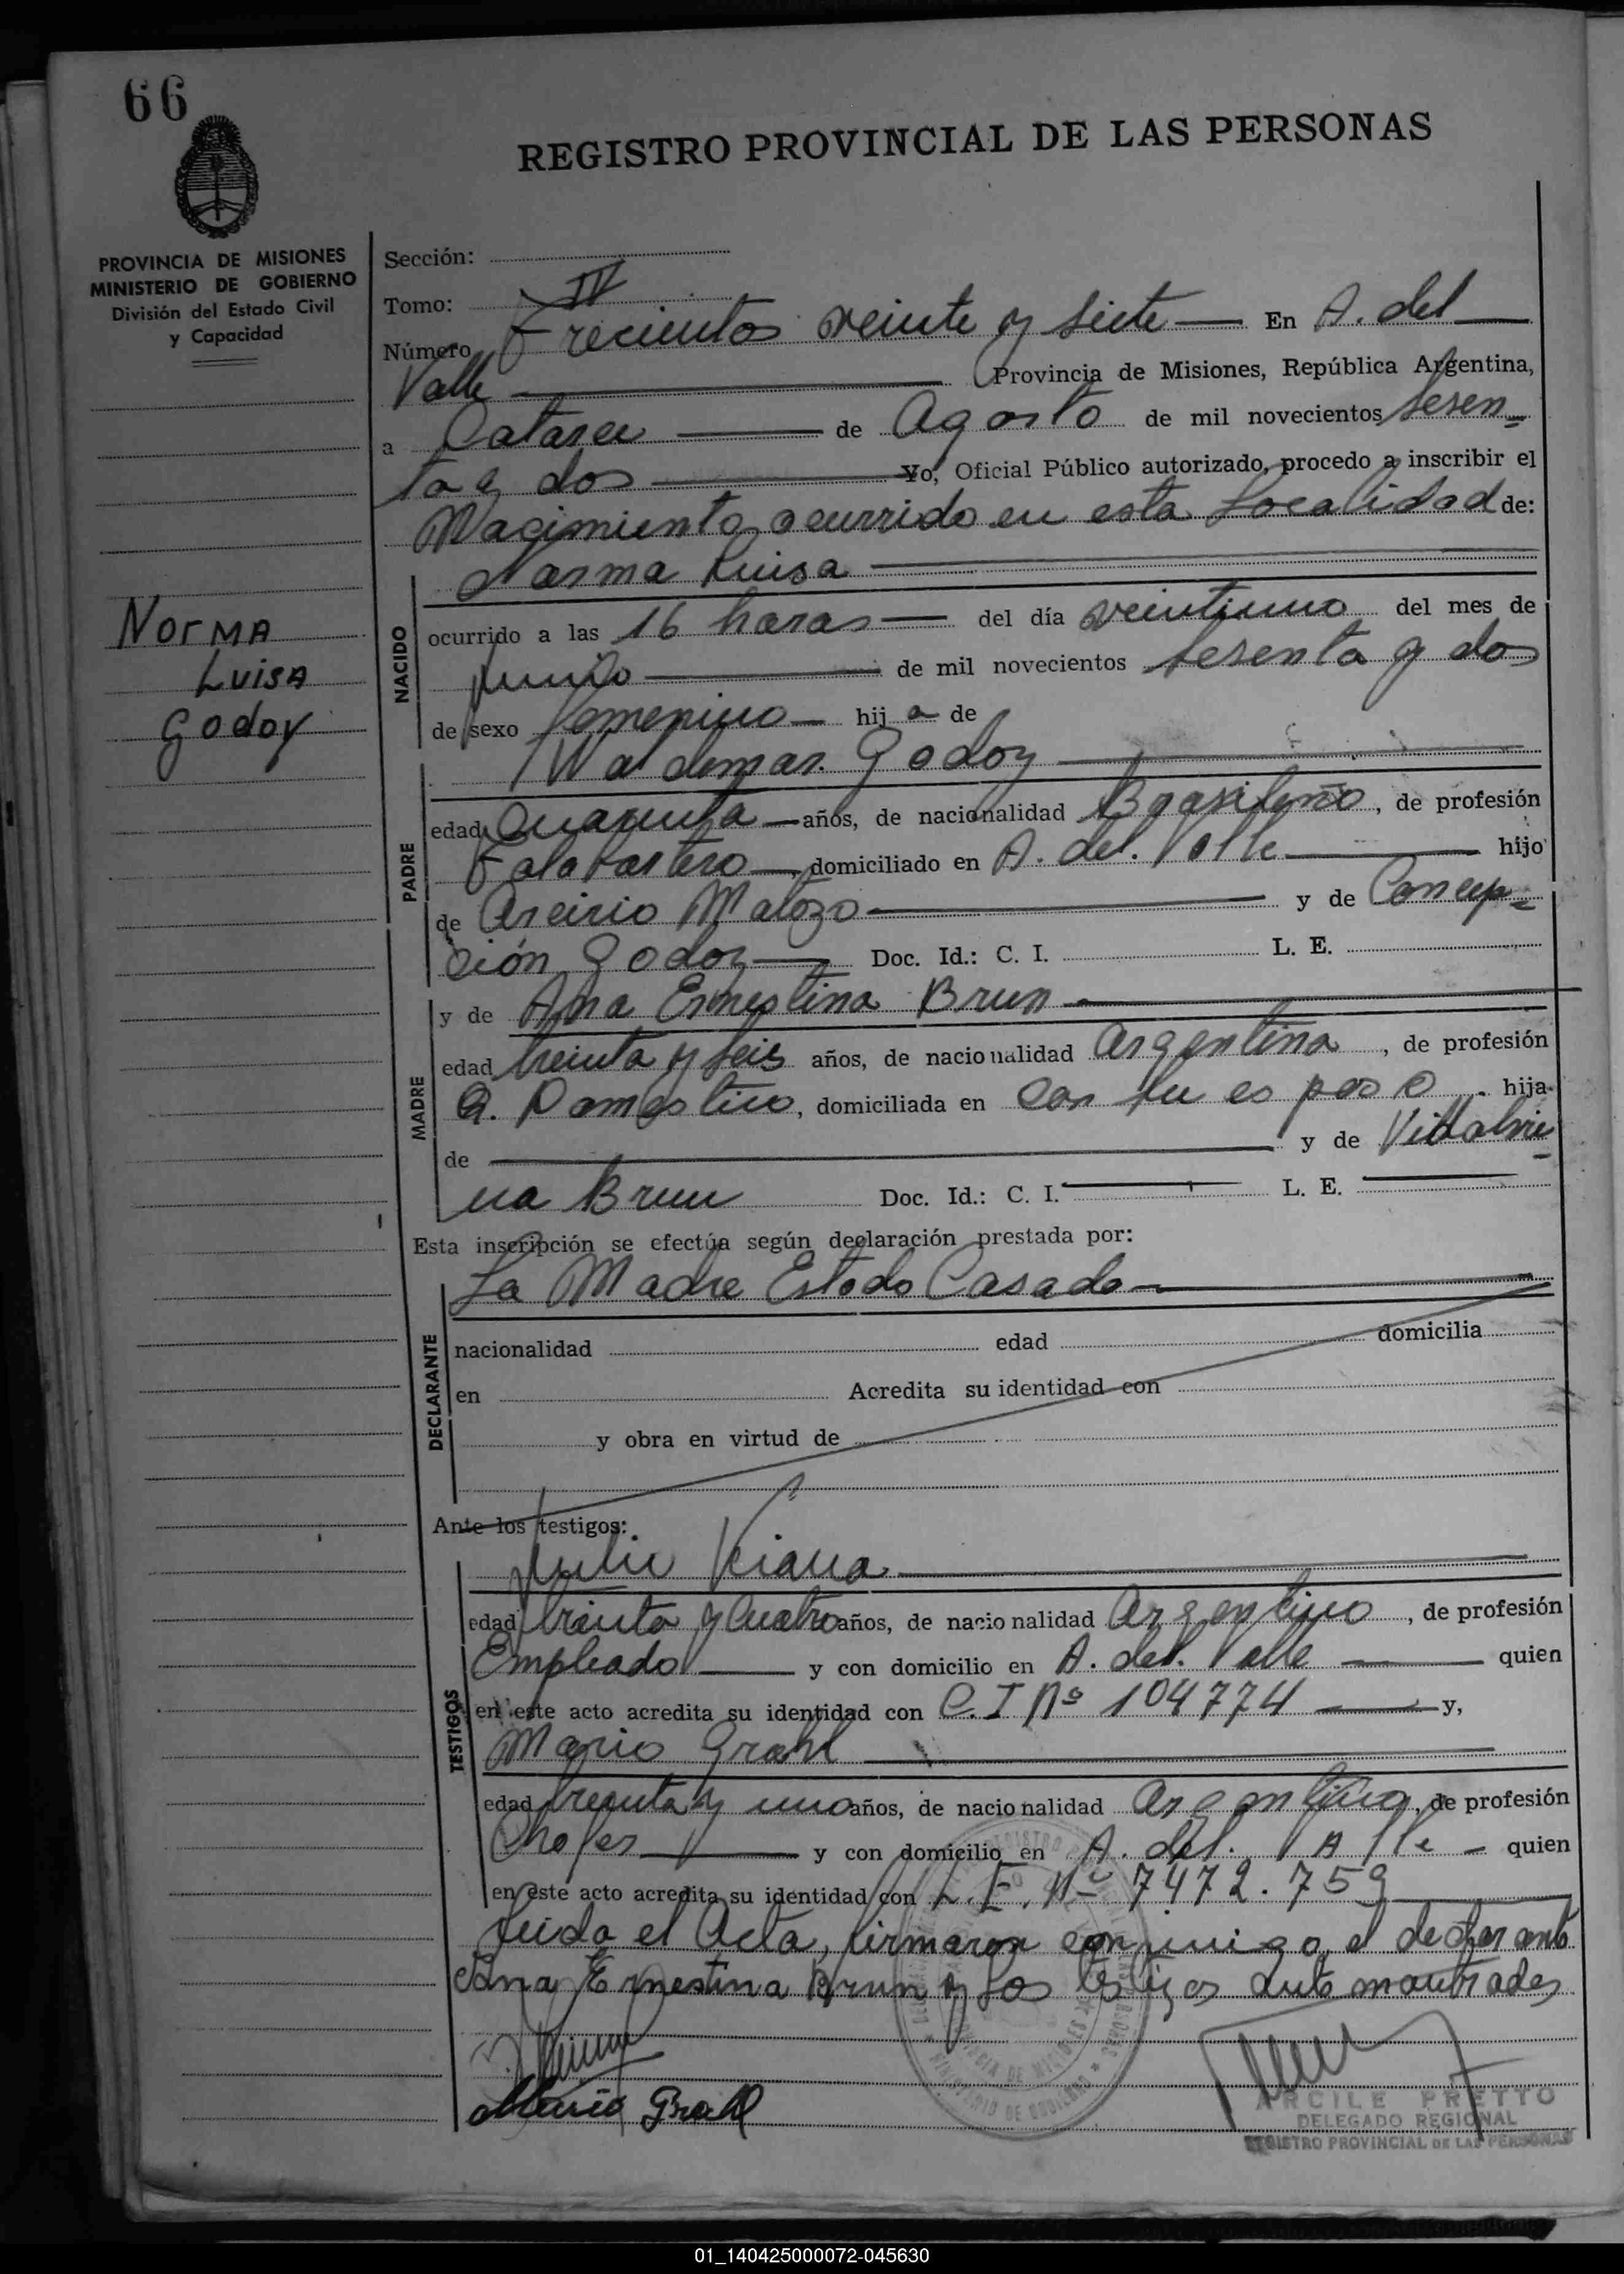 66
REGISTRO PROVINCIAL DE LAS PERSONAS
PROVINCIA DE MISIONES
MINISTERIO DE GOBIERNO
División del Estado Civil
y Capacidad
Norma
Luisa
Godoy
Sección:
Tomo: IV
Número Trecientos veinte y siete — En A. del —
Valle — Provincia de Misiones, República Argentina,
a Catorce — de Agosto de mil novecientos sesen=
ta y dos — Yo, Oficial Público autorizado, procedo a inscribir el
Nacimiento ocurrido en esta Localidad de:
Norma Luisa —
NACIDO
ocurrido a las 16 horas — del día veintiuno del mes de
Junio — de mil novecientos sesenta y dos
de sexo femenino — hij a de
Waldemar Godoy —
PADRE
edad Cuarenta — años, de nacionalidad Brasileño, de profesión
domiciliado en A. del. Valle — hijo
de Matozo — y de Concep=
ción Godoy — Doc. Id.: C. I. L. E.
MADRE
y de Ana Ernestina Brun —
edad treinta y seis años, de nacionalidad Argentina, de profesión
Q. Domestico, domiciliada en Con su esposo hija
de — y de
na Brun Doc. Id.: C. I. — L. E. —
Esta inscripción se efectúa según declaración prestada por:
La Madre Estado Casada —
DECLARANTE
nacionalidad edad domicilia
en Acredita su identidad con
y obra en virtud de
Ante los testigos:
Julio Viana —
TESTIGOS
edad treinta y Cuatro años, de nacionalidad Argentino, de profesión
Empleado — y con domicilio en A. del. Valle — quien
en este acto acredita su identidad con C. I Nº 104774 — y,
Mario Grahl —
edad treinta y uno años, de nacionalidad Argentino, de profesión
Chofer — y con domicilio en A. del. Valle - quien
en este acto acredita su identidad con L. E. Nº 7472.759 —
Leida el Acta, firmaron conmigo el declarante
Ana Ernestina Brun y los testigos
Mario Grahl
ARCILE PRETTO
DELEGADO REGIONAL
REGISTRO PROVINCIAL DE LAS PERSONAS
01_140425000072-045630